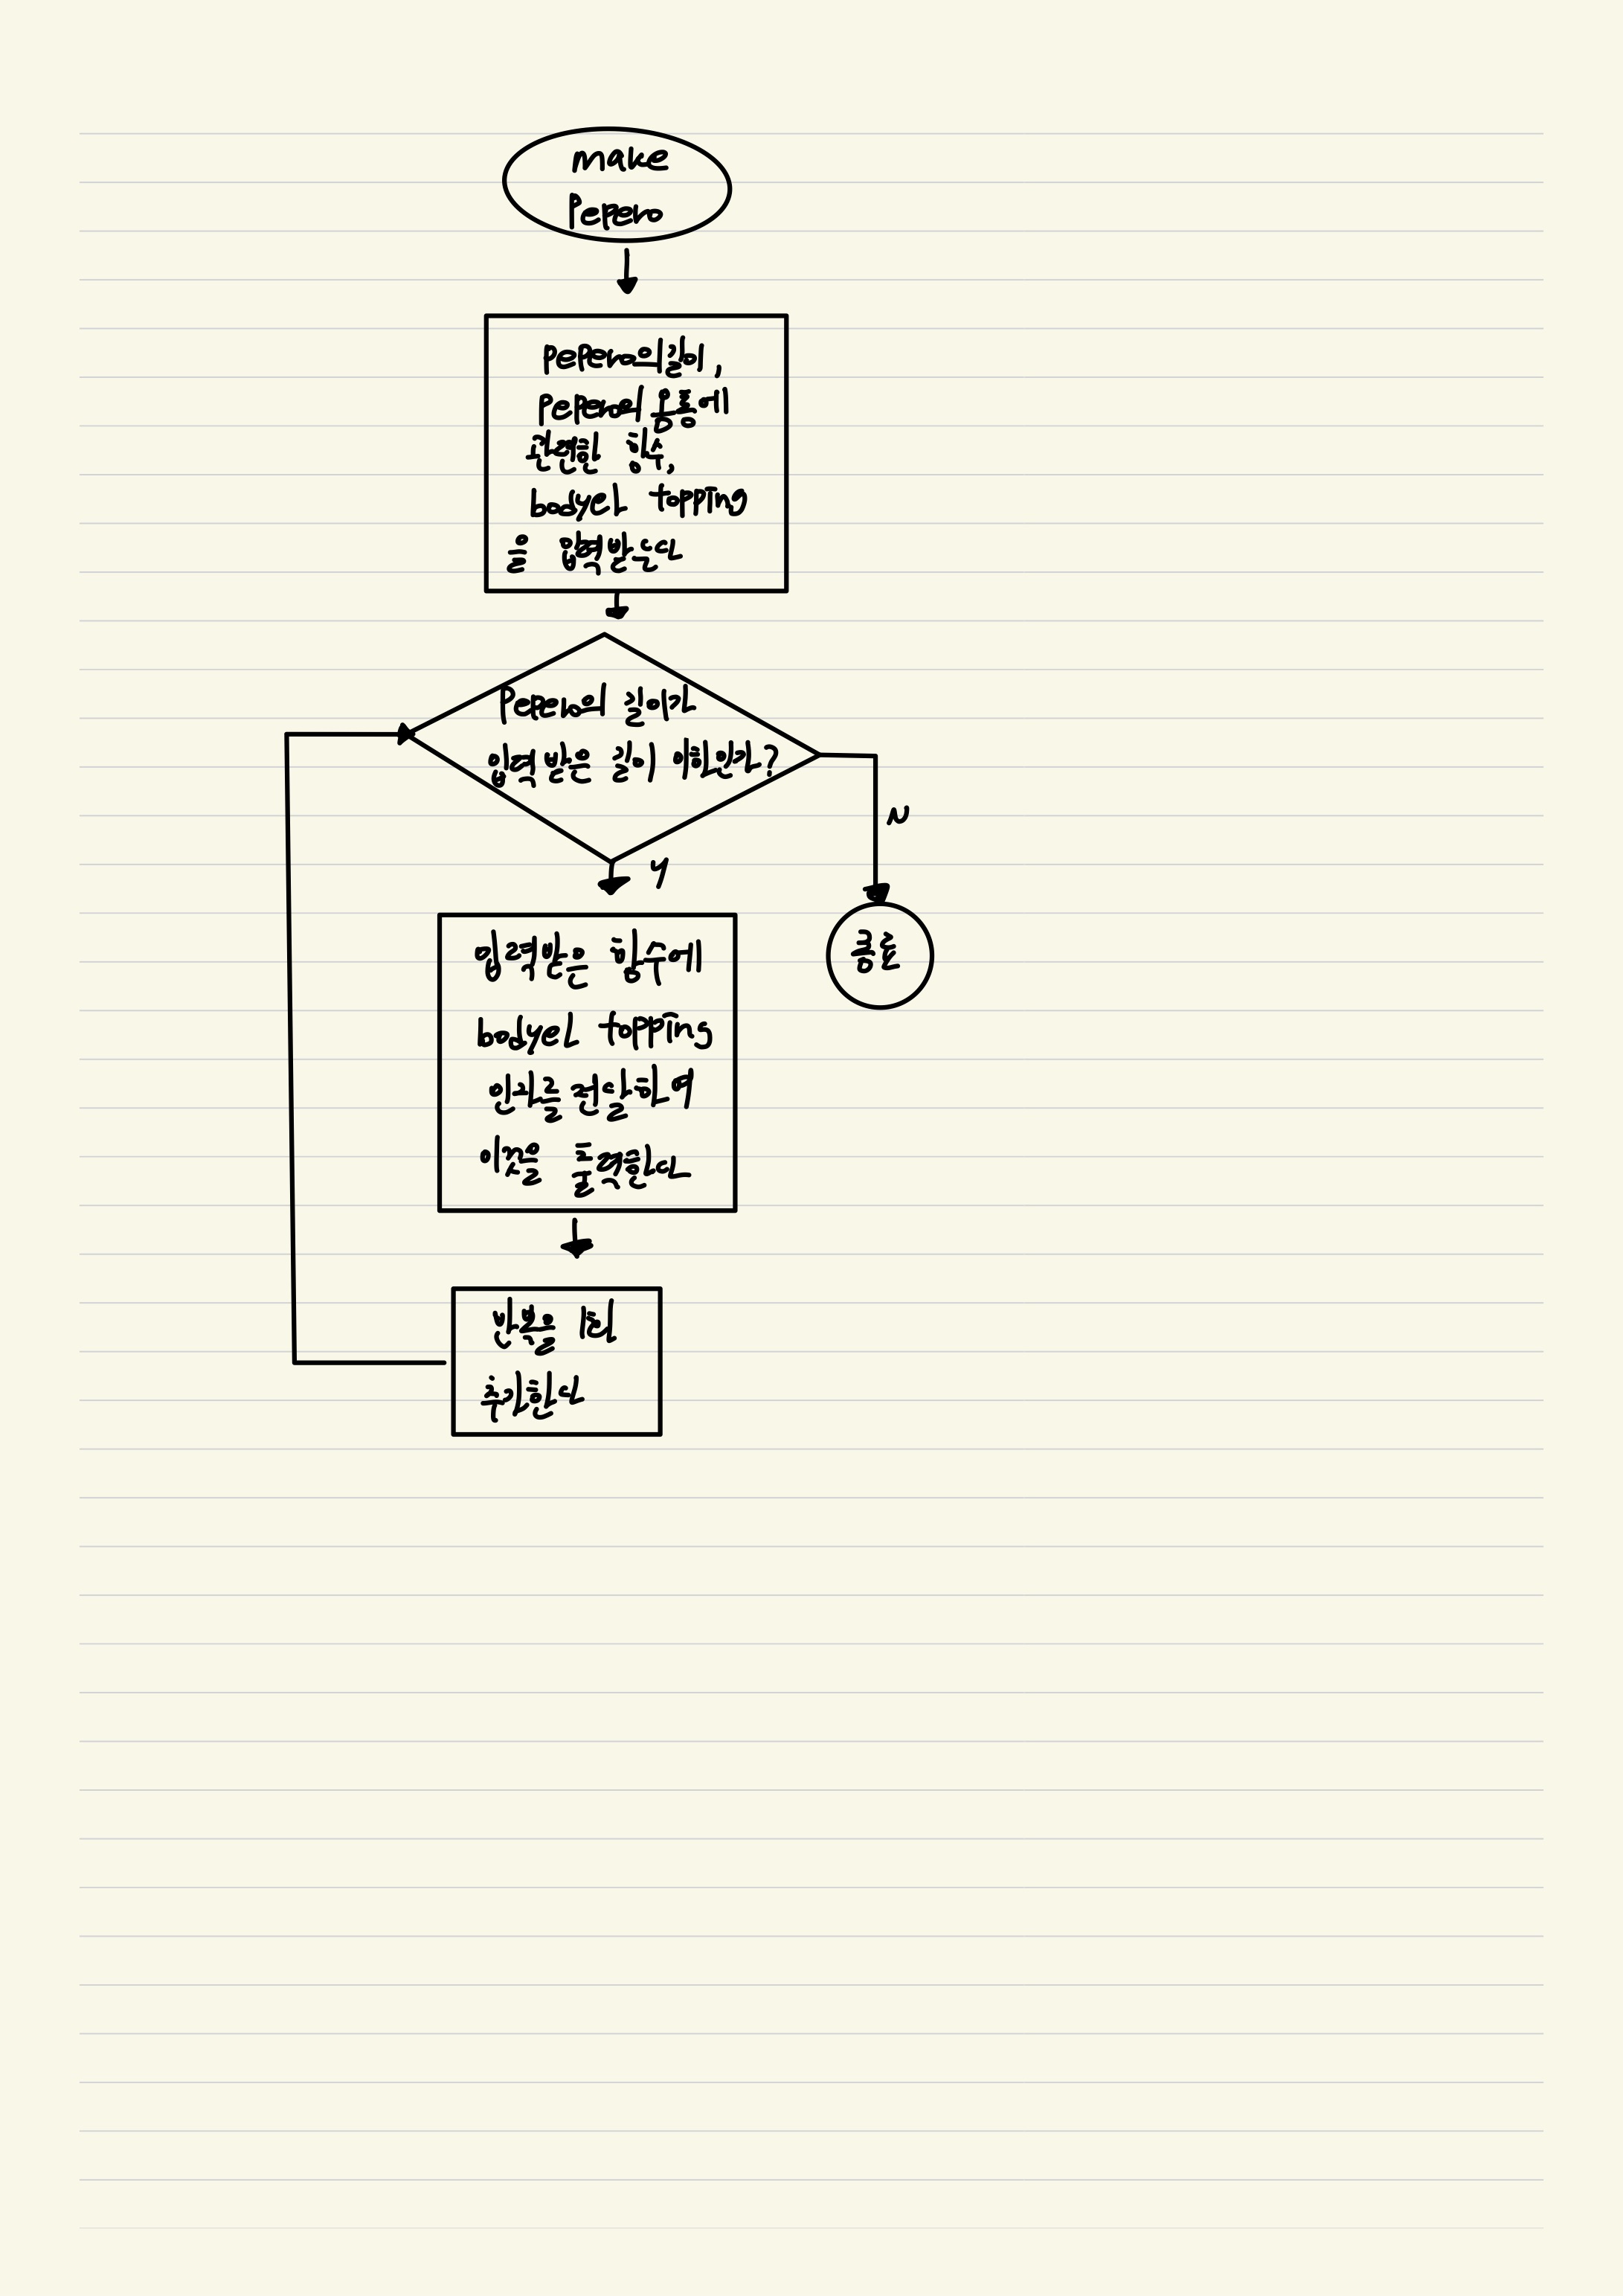 make
Pepero
pepero의 길이,
pepero의 유륭에
관련한 함수,
body와 topping
을 입력받는다
Pepero의 길이가
입력 받은 길이 이하인가?
N
Y
입력받은 함수에
body와 topping
인자를 전달하여
이것을 출력한다
종료
반복을 1회
추가한다